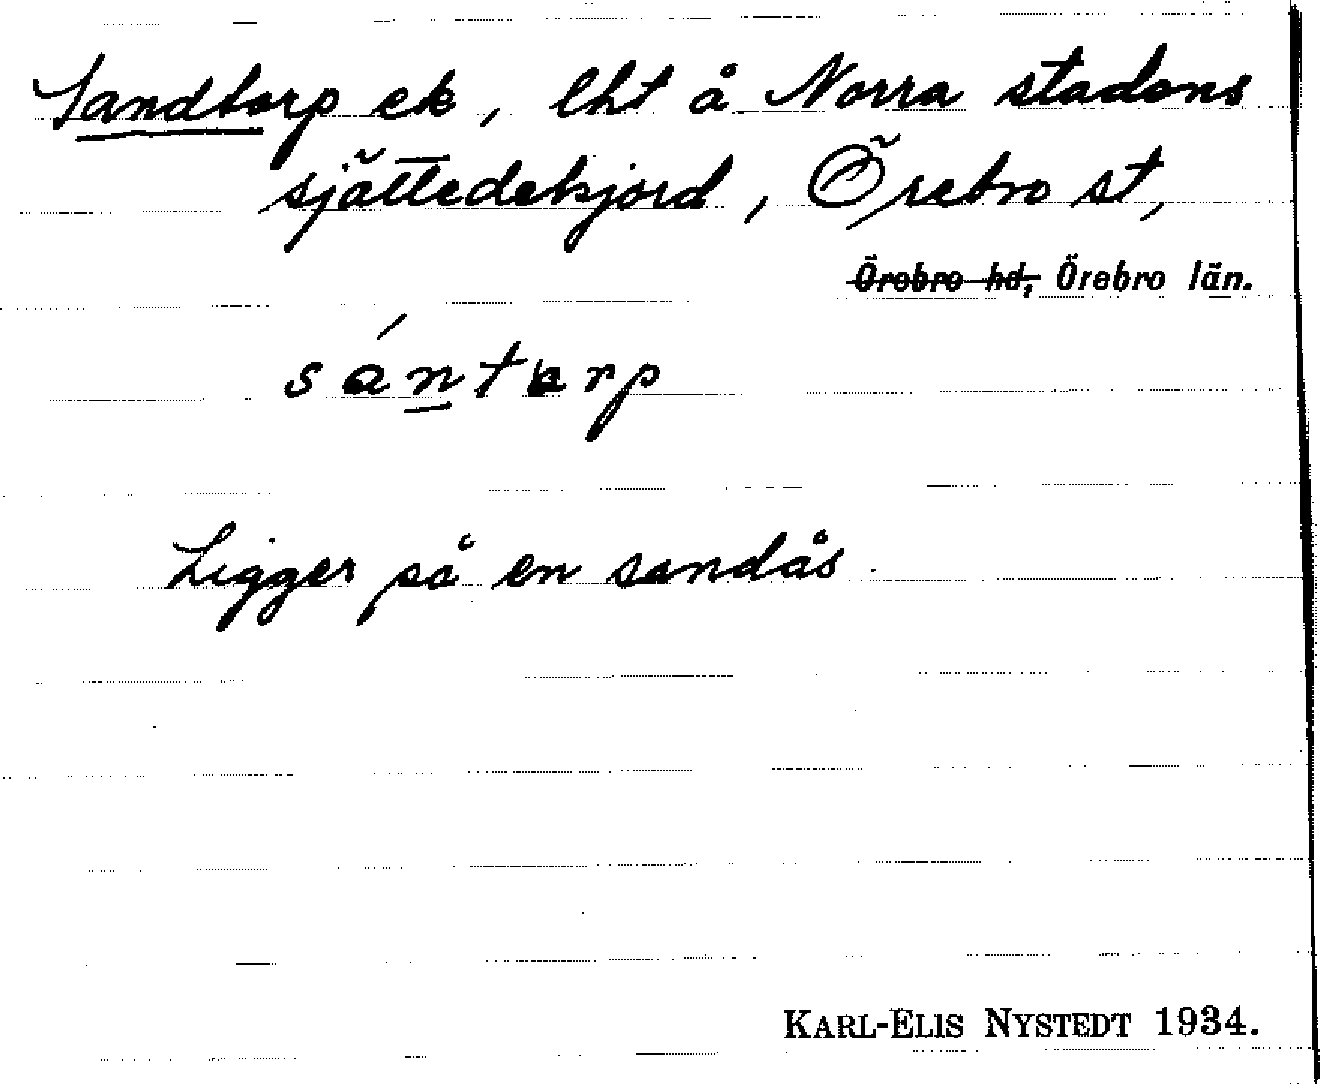 Sandtorp ek, lht å Norra stadens
sjättedelsjord, Örebro st,
Örebro hd, Örebro län.
sántorp
Ligger på en sandås.
KARL-ELIS NYSTEDT 1934.